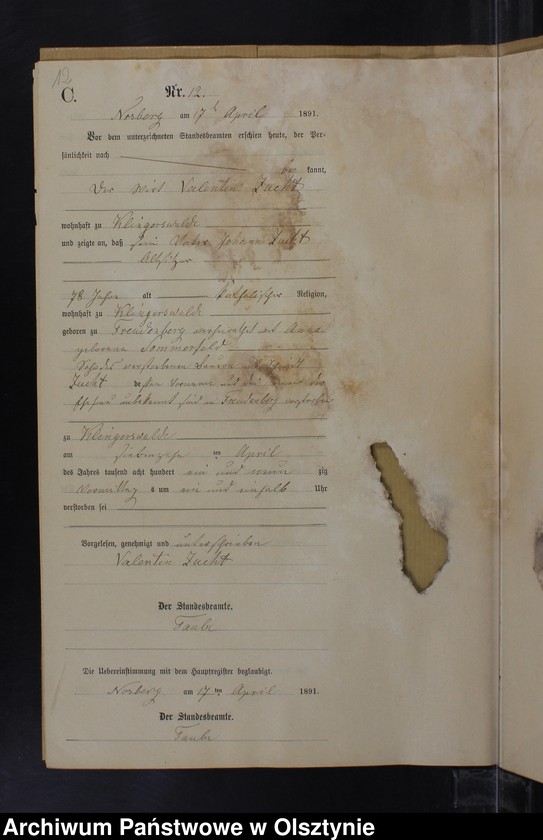 12
C.
Nr. 12.
Norberg am 17t April 1891.
Vor dem unterzeichneten Standesbeamten erschien heute, der Per-
sönlichkeit nach
be kannt,
der Wirt Valentin Zucht
wohnhaft zu Klingerswalde
und zeigte an, daß sein Vater Johann Zucht
Altsitzer
78 Jahre alt katholischer Religion,
wohnhaft zu Klingerswalde
geboren zu Freudenberg verheiratet mit Anna
geborene Sommerfeld
Sohn des verstorbenen Bauern
Zucht dessen Vorname und der Name der
Ehefrau unbekannt sind in Freudenberg verstorben
zu Klingerswalde
am siebenzehn ten April
des Jahres tausend acht hundert ein und neun zig
Vormittag s um ein und einhalb Uhr
verstorben sei
Vorgelesen, genehmigt und unterschrieben
Valentin Zucht
Der Standesbeamte.
Taube
Die Uebereinstimmung mit dem Hauptregister beglaubigt.
Norberg am 17 ten April 1891.
Der Standesbeamte.
Taube
Archiwum Państwowe w Olsztynie